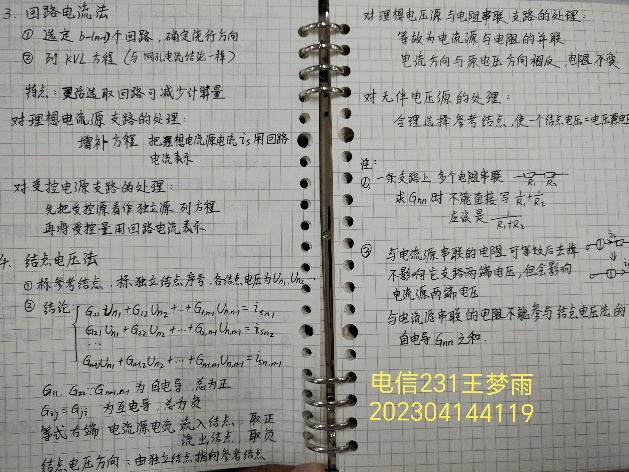 3. 回路电流法
① 选定b-(n-1)个回路,确定绕行方向
② 列KVL方程(与网孔电流结论一样)
特点:灵活选取回路可减少计算量
对理想电流源支路的处理:
增补方程 把理想电流源电流is用回路
电流表示
对受控电源支路的处理:
先把受控源看作独立源列方程
再将受控量用回路电流表示
4. 结点电压法
① 标参考结点、标独立结点序号,各结点电压为Un1,Un2…
② 结论
G11Un1+G12Un2+…+G1,n-1Un,n-1=isn1
G21Un1+G22Un2+…+G2,n-1Un,n-1=isn2
…
Gn-1,1Un1+Gn-1,2Un2+…+Gn-1,n-1Un,n-1=isn,n-1
G11、G22…Gn-1,n-1 为自电导,总为正
Gij=Gji 为互电导,总为负
等式右端 电流源电流 流入结点、取正
流出结点 取负
结点电压方向:由独立结点指向参考结点
对理想电压源与电阻串联支路的处理:
等效为电流源与电阻的并联
电流方向与原电压方向相反,电阻不变
对无伴电压源的处理:
合理选择参考结点,使一个结点电压=电压源电压
注:
① 一条支路上多个电阻串联 R1 R2
求Gnn时不能直接写 1/R1+1/R2
应该是 1/(R1+R2)
② 与电流源串联的电阻可等效后去掉
不影响它支路两端电压,但会影响
电流源两端电压
与电流源串联的电阻不能参与结点电压法的
自电导Gnn之和.
电信231王梦雨
202304144119